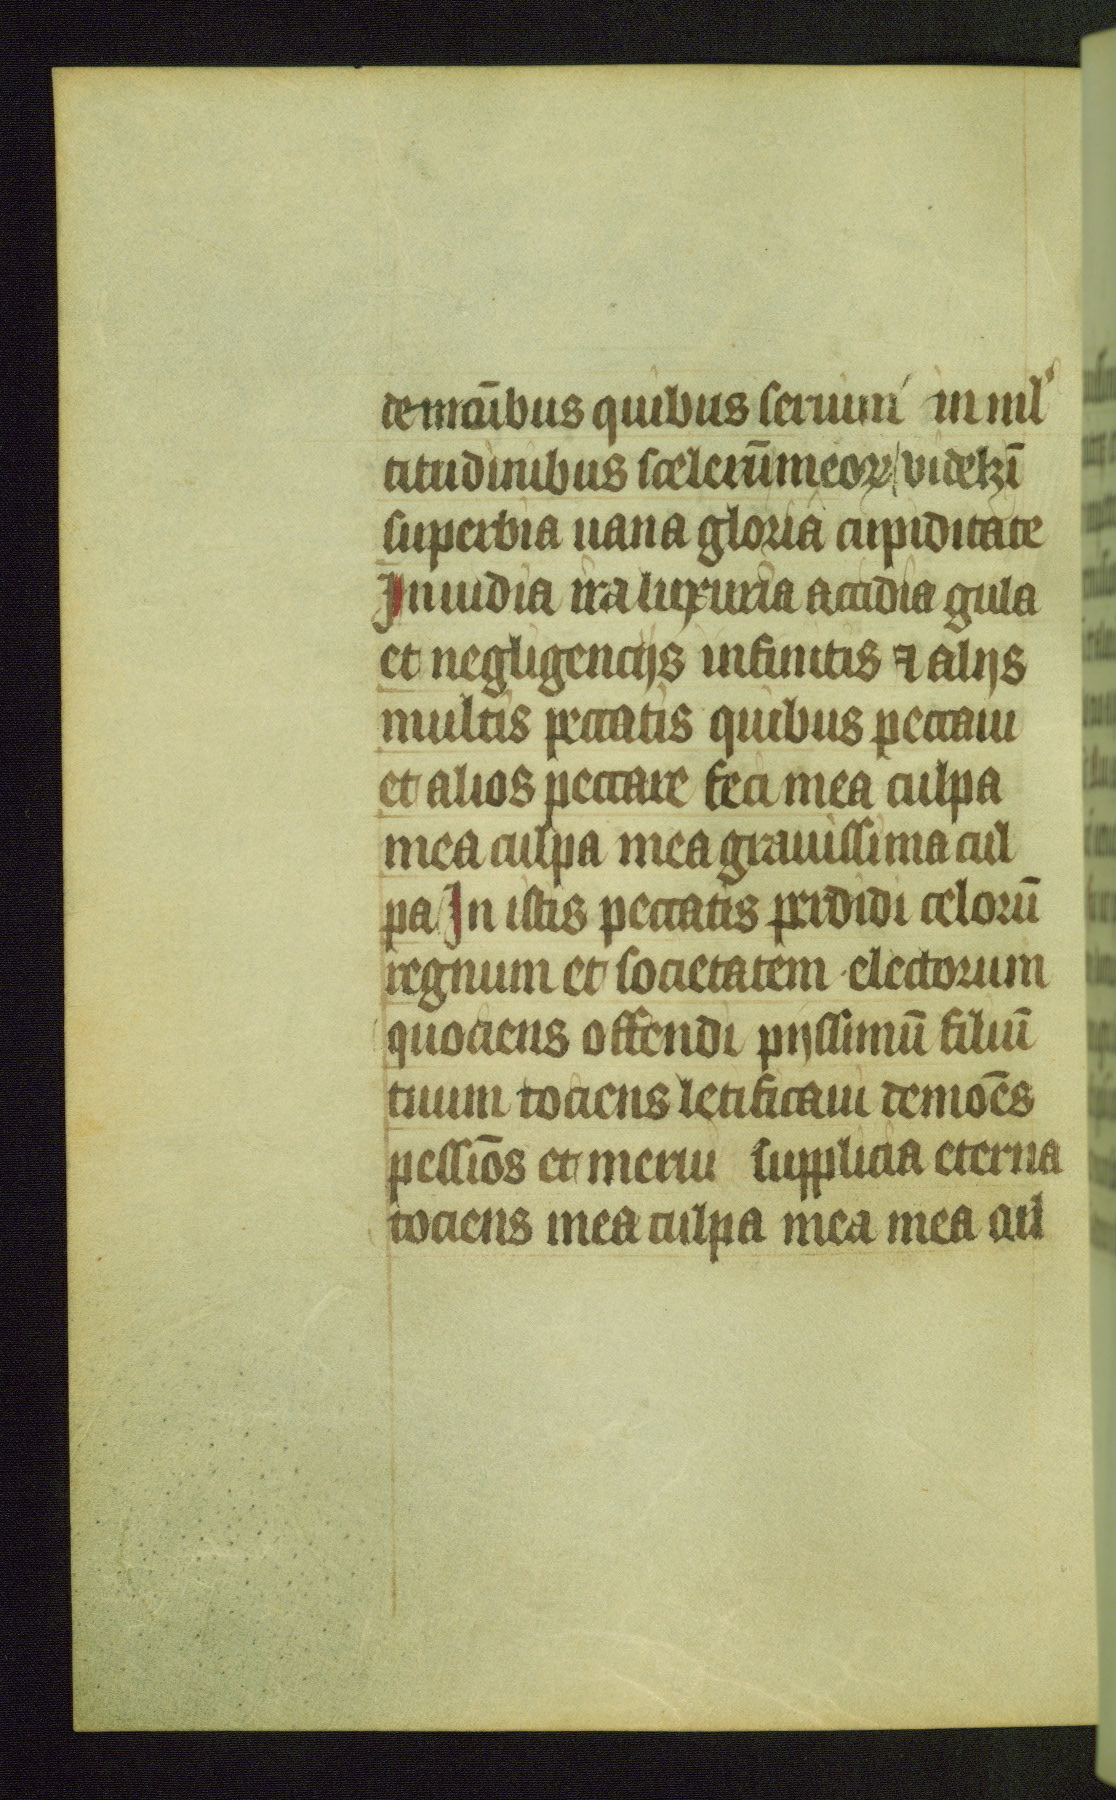 quibus seruiui in ml
titudinibus scelerū meoꝝ videlꝫ ī
superbia uana gloria cupiditate
Inuidia ira luxuria accidia gula
et negligencijs infinitis ⁊ alijs
multis peccatis quibus peccaui
et alios peccare feci mea culpa
mea culpa mea grauissima cul
pa In istis peccatis perdidi celorū
regnum et societatem electorum
quociens offendi pijssimū filiū
tuum tociens letificaui demoēs
pessiōs et merui supplicia eterna
tociens mea culpa mea mea cul